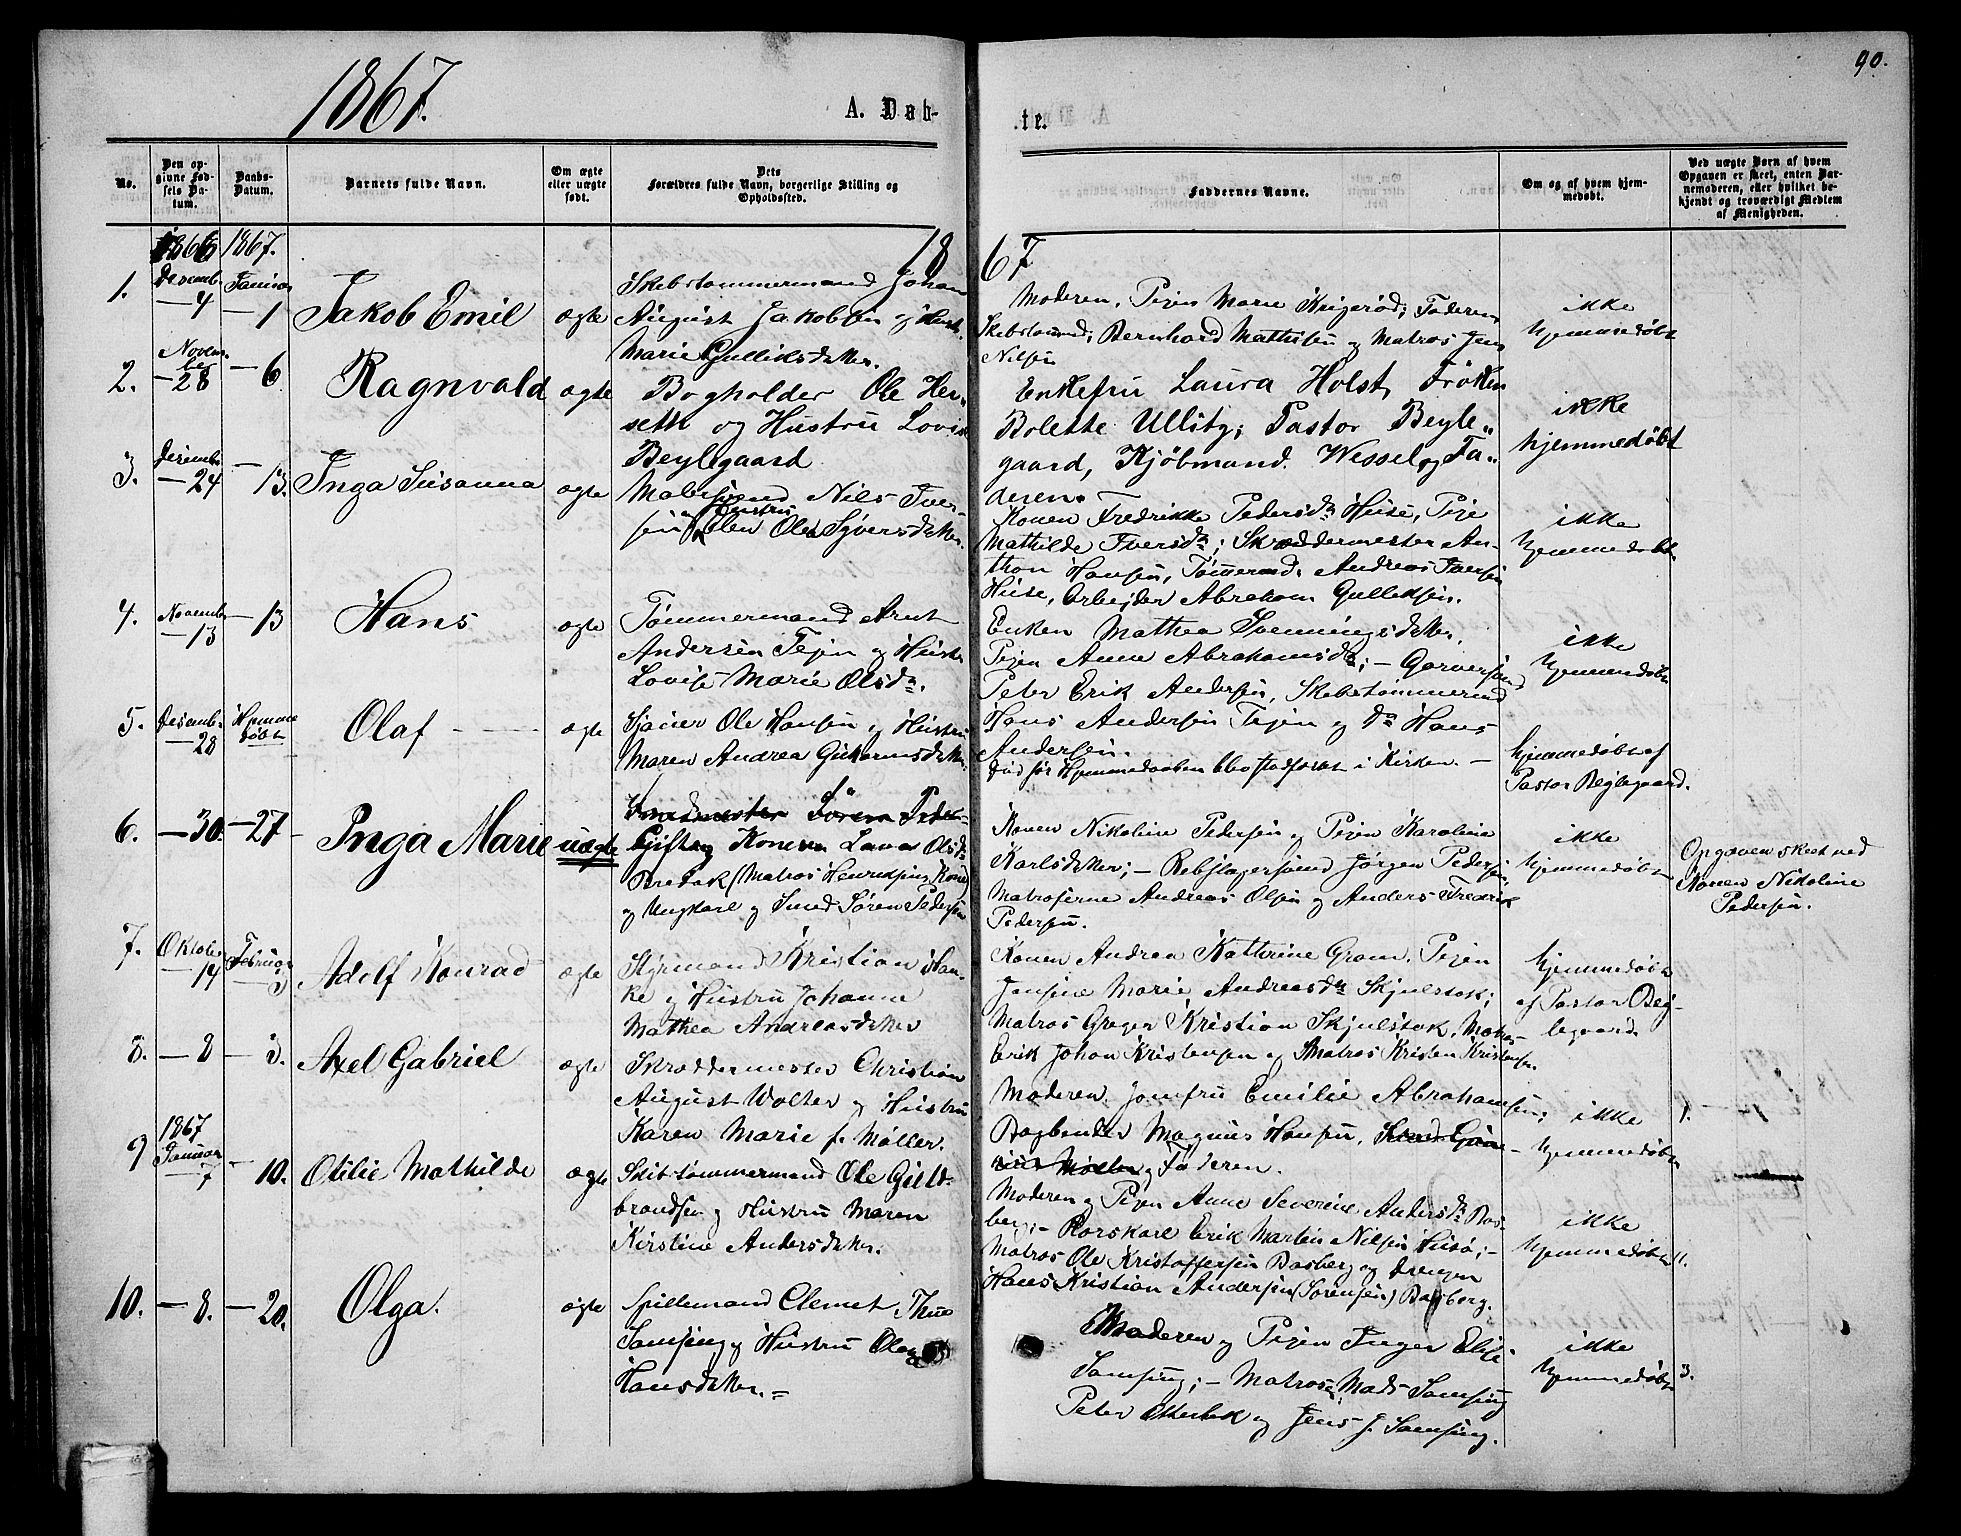 90.
1867.
A. Døb-
te.
No.
Den op-
givne Fød-
sels Da-
tum.
Daabs-
Datum.
Barnets fulde Navn.
Om ægte
eller uægte
født.
Dets
Forældres fulde Navn, borgerlige Stilling og
Opholdssted.
Faddernes Navne.
Om og af hvem hjem-
medøbt.
Ved uægte Børn af hvem
Opgaven er skeet, enten Bar-
nemoderen, eller hvilket be-
kjendt og troværdigt Medlem
af Menigheden.
1866
1867.
18
67
1.
Decemb.
— 4
Januar
— 1
Jakob Emil
ægte
Skibstømmermand Johan
August Jakobsen og Hustr.
Marie Gulliksdatter.
Moderen, Pigen Marie Krigerød; Faderen,
Skibstømmd; Bernhard Mathisen og Matros Jens
Nilsen
ikke
hjemmedøbt
2.
Novem-
ber
— 28
— 6
Ragnvald
ægte
Bogholder Ole Her-
seth og Hustru Lovise
Beylegaard
Enkefru Laura Holst, Frøken
Bolette Ullitz; Pastor Beyle-
gaard, Kjøbmand Wessel og Fa-
deren.
ikke
hjemmedøbt
3.
Desemb.
— 24
— 13.
Inga Susanna
ægte
Malersvend Nils Iver-
sen og Hustru Elen Olea Syversdatter.
Konen Fredrikke Pedersdr Huse, Pige
Mathilde Iversdr; Skræddermester An-
thon Hansen, Tømmermd. Andreas Iversen
Huse, Arbejder Abraham Gulleksen.
ikke
hjemmedøbt
4.
Novemb.
— 13
— 13
Hans
ægte
Tømmermand Arnt
Andersen Tejen og Hustr.
Lovise Marie Olsdr.
Enken Mathea Svenningsdatter,
Pigen Anne Abrahamsdr; — Garversvend
Peter Erik Andersen, Skibstømmermd
Hans Andersen Tejen og do Hans
Andersen.
ikke
hjemmedøbt
5.
Desemb.
— 28
Hjemme
døbt
Olaf
ægte
Sjauer Ole Hansen og Hustru
Maren Andrea
død før Hjemmedaaben blev stadfæstet i Kirken. —
hjemmedøbt af
Pastor Beylegaard.
6.
— 30.
— 27
Inga Marie
uægte
Gift Kone Lava Olsdr
Bredak (Matros Henriksens Kone)
og Ungkarl og Smed Søren Pedersen
Konen Nikoline Pedersen og Pigen Karoline
Karlsdatter; — Rebslagersvend Jørgen Pedersen,
Matroserne Andreas Olsen og Anders Fredrik
Pedersen.
ikke
hjemmedøbt
Opgaven skeet ved
Konen Nikoline
Pedersen.
7.
Oktober
— 14
Februar
3
Adolf Konrad
ægte
Styrmand Kristian Han-
ke og Hustru Johanne
Mathea Andreasdatter
Konen Andrea Kathrine Gram, Pigen
Jensine Marie Andreasdr Skjulstok;
Matros Greger Kristian Skjulstok, Matros
Erik Johan Kristensen og Matros Kristen Kristensen.
hjemmedøbt
af Pastor Bey-
legaard.
8.
— 8
— 3.
Axel Gabriel
ægte
Skræddermester Christian
August Wolter og Hustru
Karen Marie f. Møller.
Moderen, Jomfru Emilie Abrahamsen;
Bogbinder Magnus Hansen,
og Faderen.
ikke
hjemmedøbt
1.
9
1867
Januar
— 7
— 10.
Otilie Mathilde
ægte
Skibstømmermand Ole Guld-
brandsen og Hustru Maren
Kirstine Andersdatter.
Moderen og Pigen Anne Severine Andersdr Bas-
berg; — Ungkarl Erik Martin Nilsen Husø; —
Matros Ole Kristoffersen Basberg og Drengen
Hans Kristian Andersen (Sørensen) Basberg.
ikke
hjemmedøbt
11.
10.
— 8.
— 20.
Olga.
ægte
Spillemand Clemet Thue
Samsing og Hustru Olea
Hansdatter. =
Moderen og Pigen Inger Elise
Samsing; — Matros Mads Samsing
Peter Etterbek og Jens J. Samsing.
ikke
hjemmedøbt
3.